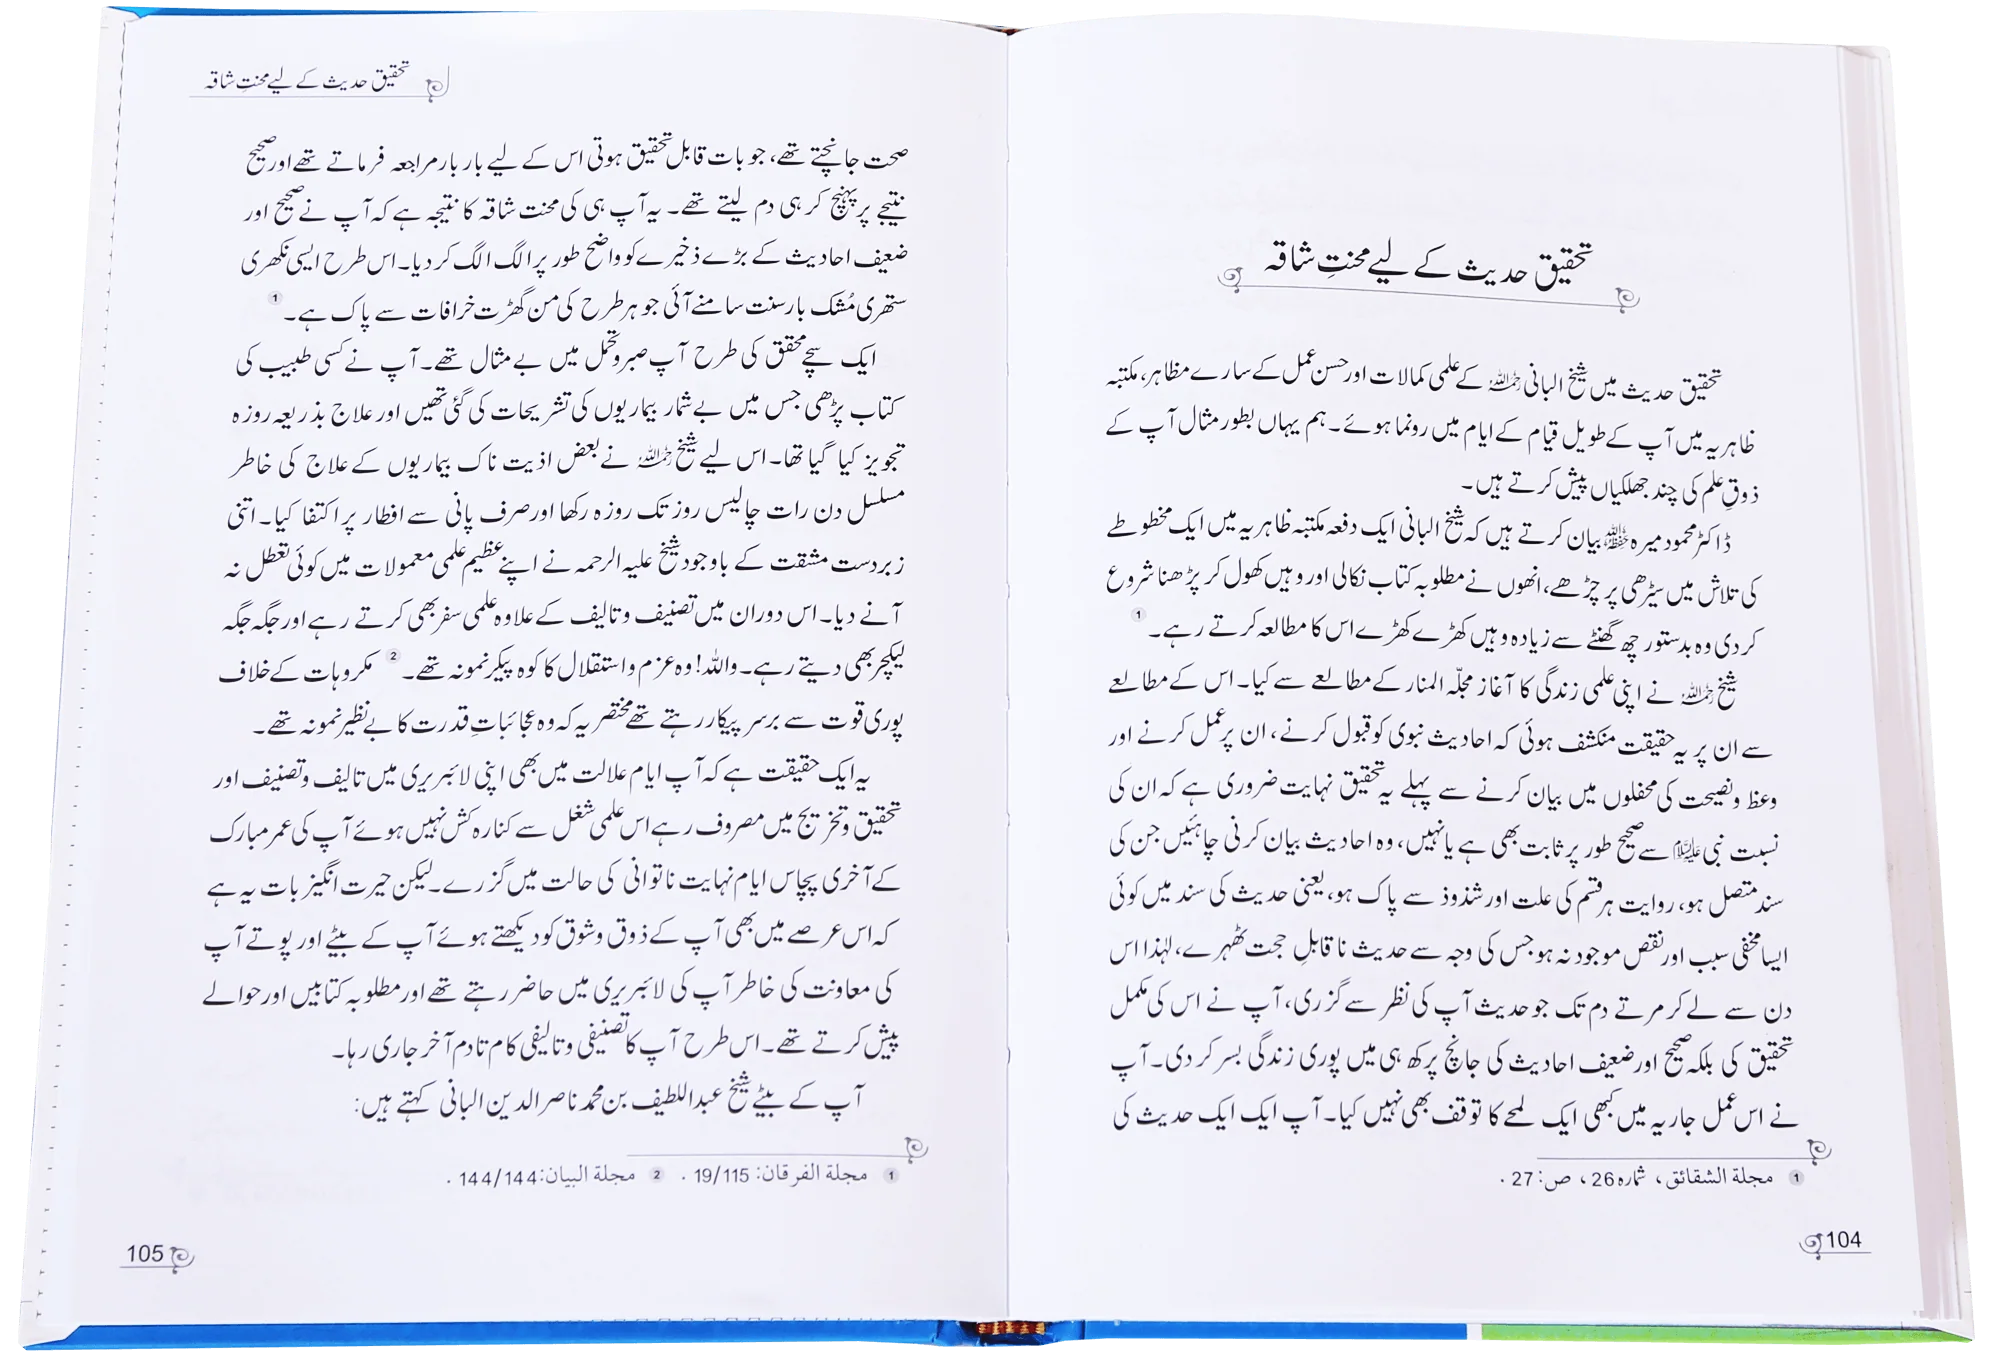 تحقیق حدیث کے لیے محنتِ شاقہ
تحقیق حدیث میں شیخ البانی رحمہ اللہ کے علمی کمالات اور حسن عمل کے سارے مظاہر، مکتبہ
ظاہریہ میں آپ کے طویل قیام کے ایام میں رونما ہوئے۔ ہم یہاں بطور مثال آپ کے
ذوقِ علم کی چند جھلکیاں پیش کرتے ہیں۔
ڈاکٹر محمود میرہ حفظہ اللہ بیان کرتے ہیں کہ شیخ البانی ایک دفعہ مکتبہ ظاہریہ میں ایک مخطوطے
کی تلاش میں سیڑھی پر چڑھے، انھوں نے مطلوبہ کتاب نکالی اور وہیں کھول کر پڑھنا شروع
کر دی وہ بدستور چھ گھنٹے سے زیادہ وہیں کھڑے کھڑے اس کا مطالعہ کرتے رہے۔ 1
شیخ رحمہ اللہ نے اپنی علمی زندگی کا آغاز مجلّہ المنار کے مطالعے سے کیا۔ اس کے مطالعے
سے ان پر یہ حقیقت منکشف ہوئی کہ احادیث نبوی کو قبول کرنے، ان پر عمل کرنے اور
وعظ و نصیحت کی محفلوں میں بیان کرنے سے پہلے یہ تحقیق نہایت ضروری ہے کہ ان کی
نسبت نبی علیہ السلام سے صحیح طور پر ثابت بھی ہے یا نہیں، وہ احادیث بیان کرنی چاہئیں جن کی
سند متصل ہو، روایت ہر قسم کی علت اور شذوذ سے پاک ہو، یعنی حدیث کی سند میں کوئی
ایسا مخفی سبب اور نقص موجود نہ ہو جس کی وجہ سے حدیث نا قابلِ حجت ٹھہرے، لہٰذا اس
دن سے لے کر مرتے دم تک جو حدیث آپ کی نظر سے گزری، آپ نے اس کی مکمل
تحقیق کی بلکہ صحیح اور ضعیف احادیث کی جانچ پرکھ ہی میں پوری زندگی بسر کر دی۔ آپ
نے اس عمل جاریہ میں کبھی ایک لمحے کا توقف بھی نہیں کیا۔ آپ ایک ایک حدیث کی
1 مجلة الشقائق، شمارہ 26، ص: 27.
104
تحقیق حدیث کے لیے محنتِ شاقہ
صحت جانچتے تھے، جو بات قابل تحقیق ہوتی اس کے لیے بار بار مراجعہ فرماتے تھے اور صحیح
نتیجے پر پہنچ کر ہی دم لیتے تھے۔ یہ آپ ہی کی محنت شاقہ کا نتیجہ ہے کہ آپ نے صحیح اور
ضعیف احادیث کے بڑے ذخیرے کو واضح طور پر الگ الگ کر دیا۔ اس طرح ایسی نکھری
ستھری مُشک بار سنت سامنے آئی جو ہر طرح کی من گھڑت خرافات سے پاک ہے۔ 1
ایک سچے محقق کی طرح آپ صبر و تحمل میں بے مثال تھے۔ آپ نے کسی طبیب کی
کتاب پڑھی جس میں بے شمار بیماریوں کی تشریحات کی گئی تھیں اور علاج بذریعہ روزہ
تجویز کیا گیا تھا۔ اس لیے شیخ رحمہ اللہ نے بعض اذیت ناک بیماریوں کے علاج کی خاطر
مسلسل دن رات چالیس روز تک روزہ رکھا اور صرف پانی سے افطار پر اکتفا کیا۔ اتنی
زبردست مشقت کے باوجود شیخ علیہ الرحمہ نے اپنے عظیم علمی معمولات میں کوئی تعطل نہ
آنے دیا۔ اس دوران میں تصنیف و تالیف کے علاوہ علمی سفر بھی کرتے رہے اور جگہ جگہ
لیکچر بھی دیتے رہے۔ واللہ! وہ عزم و استقلال کا کوہ پیکر نمونہ تھے۔ 2 مکروہات کے خلاف
پوری قوت سے برسر پیکار رہتے تھے مختصر یہ کہ وہ عجائباتِ قدرت کا بے نظیر نمونہ تھے۔
یہ ایک حقیقت ہے کہ آپ ایام علالت میں بھی اپنی لائبریری میں تالیف و تصنیف اور
تحقیق و تخریج میں مصروف رہے اس علمی شغل سے کنارہ کش نہیں ہوئے آپ کی عمر مبارک
کے آخری پچاس ایام نہایت ناتوانی کی حالت میں گزرے۔ لیکن حیرت انگیز بات یہ ہے
کہ اس عرصے میں بھی آپ کے ذوق و شوق کو دیکھتے ہوئے آپ کے بیٹے اور پوتے آپ
کی معاونت کی خاطر آپ کی لائبریری میں حاضر رہتے تھے اور مطلوبہ کتابیں اور حوالے
پیش کرتے تھے۔ اس طرح آپ کا تصنیفی و تالیفی کام تادم آخر جاری رہا۔
آپ کے بیٹے شیخ عبداللطیف بن محمد ناصر الدین البانی کہتے ہیں:
1 مجلة الفرقان: 19/115. 2 مجلة البيان: 144/144.
105